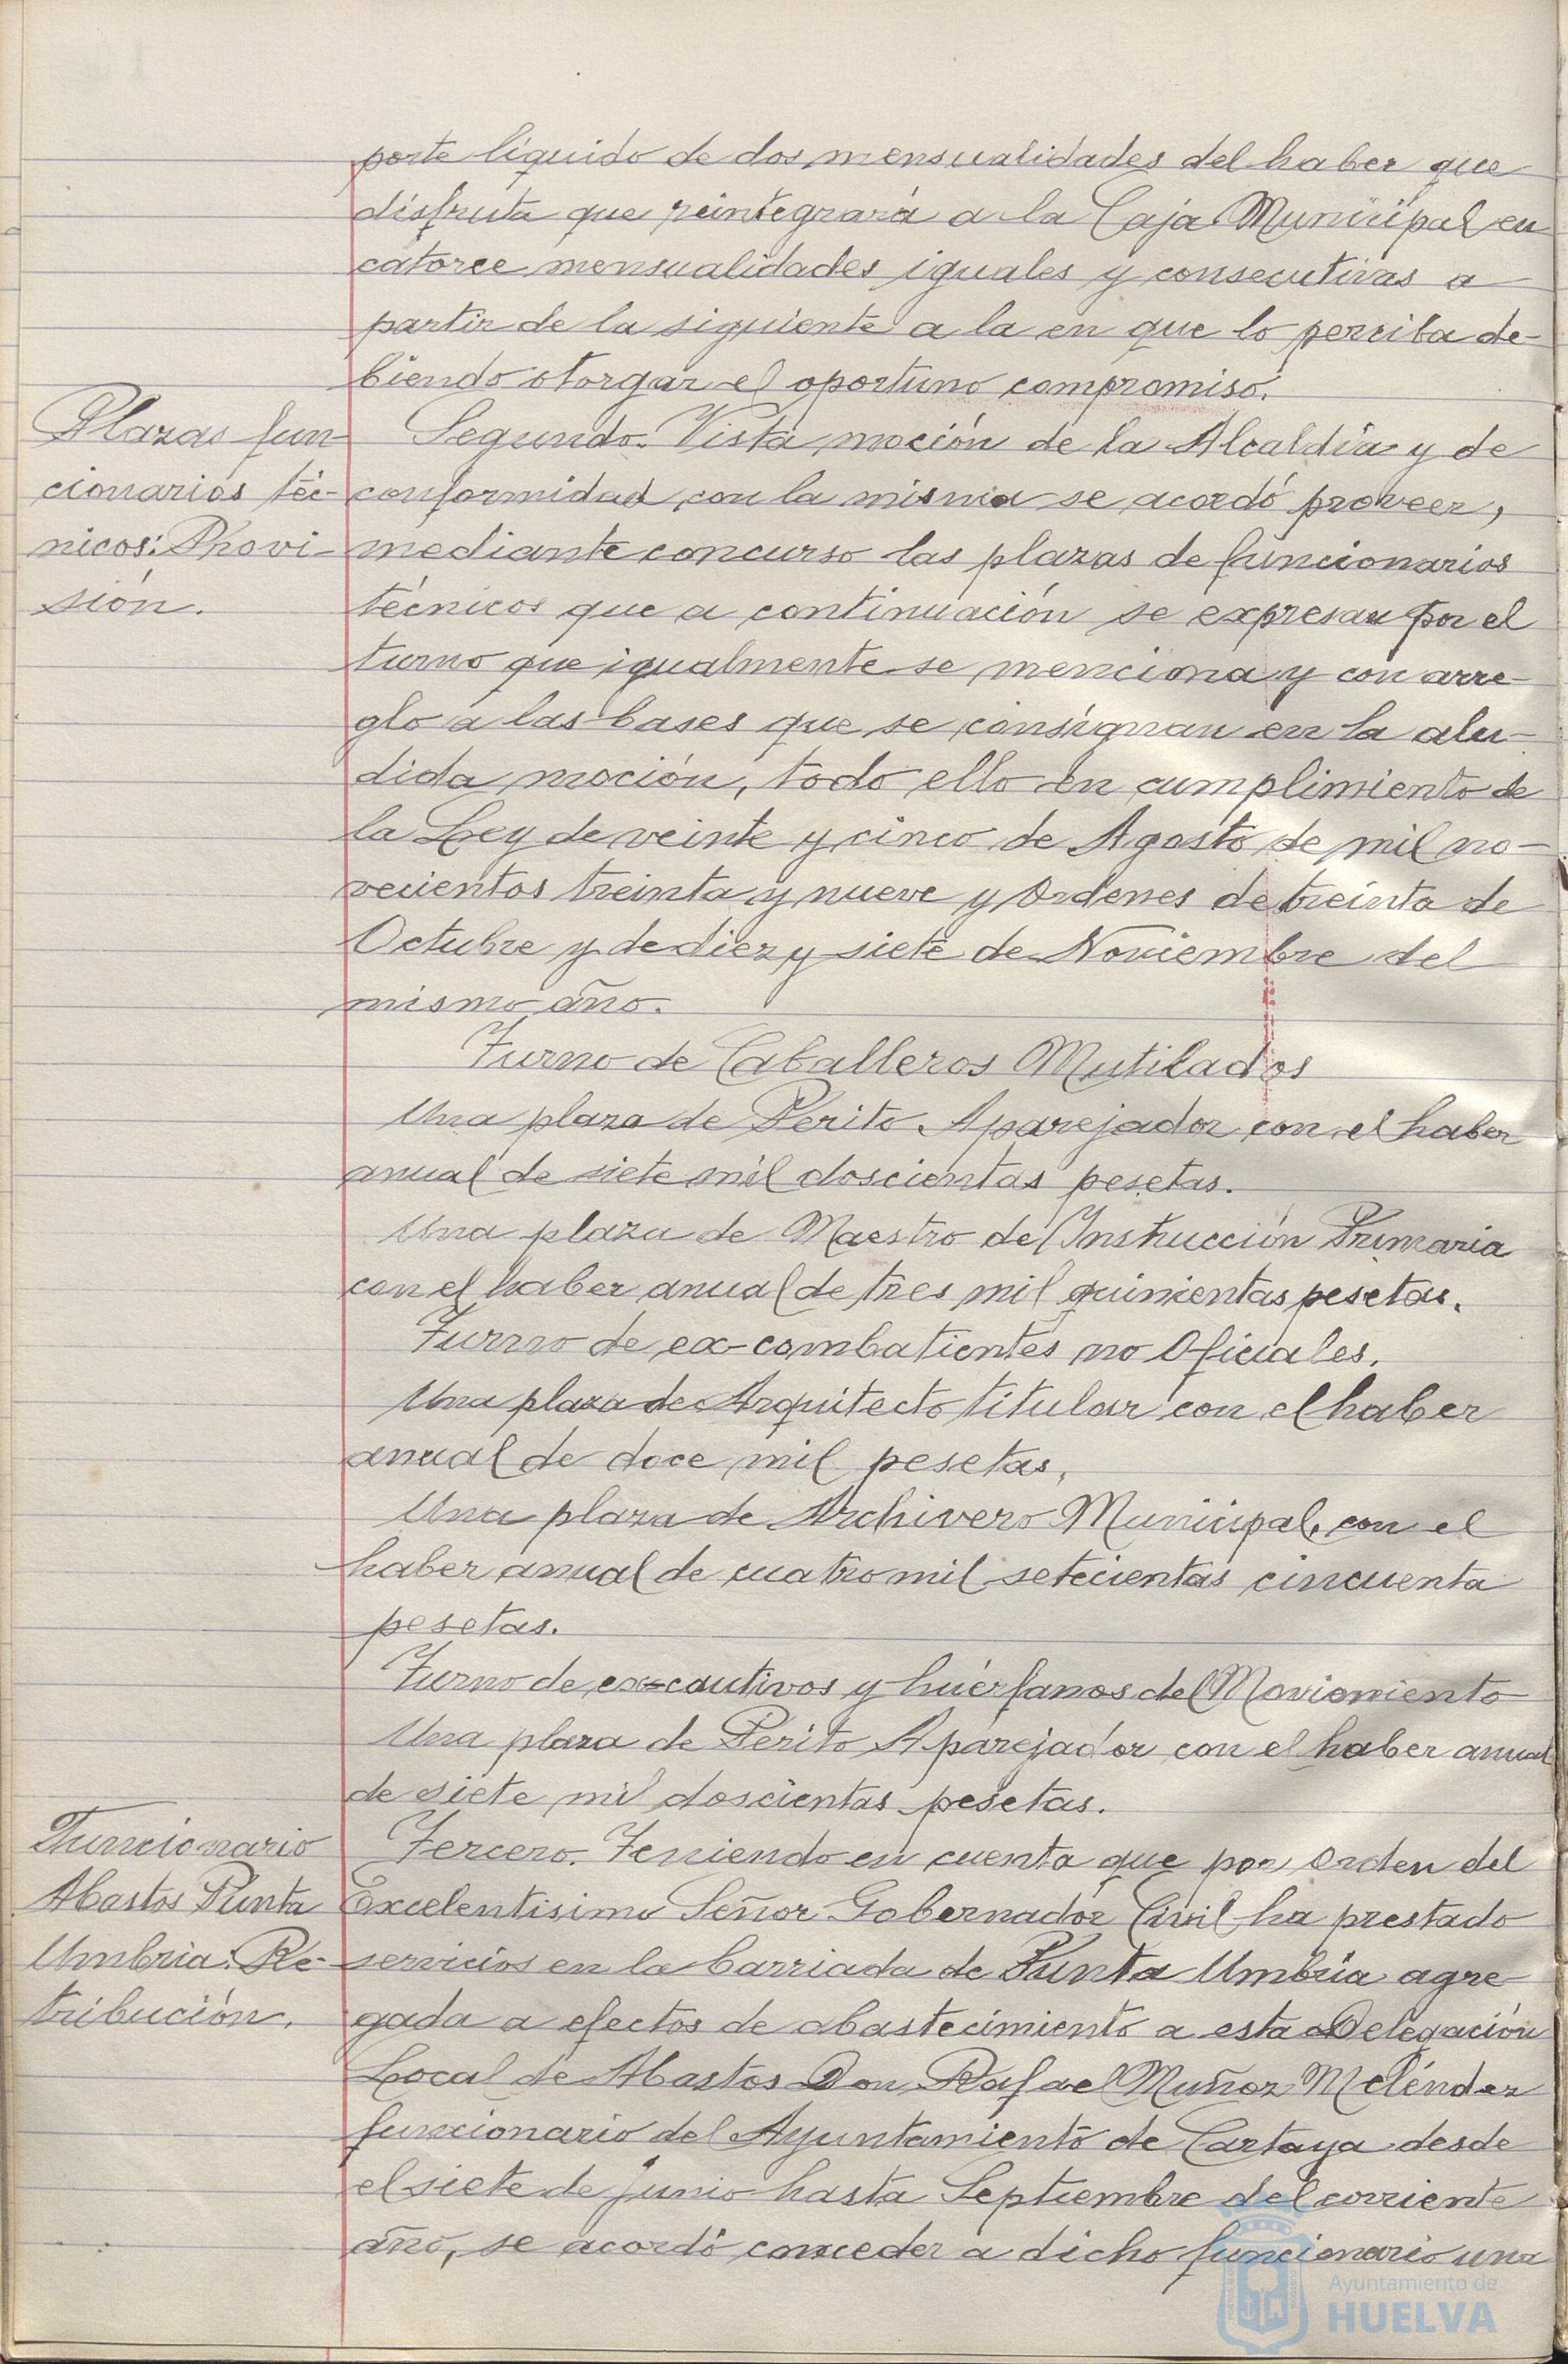 porte líquido de dos mensualidades del haber que
disfruta que reintegrará a la Caja Municipal en
catorce mensualidades iguales y consecutivas a
partir de la siguiente a la en que lo perciba de-
biendo otorgar el oportuno compromiso.
Plazas fun-
cionarios téc-
nicos: Provi-
sión.
Segundo. Vista moción de la Alcaldía y de
conformidad con la misma se acordó proveer,
mediante concurso las plazas de funcionarios
técnicos que a continuación se expresan por el
turno que igualmente se menciona y con arre-
glo a las bases que se consignan en la alu-
dida moción, todo ello en cumplimiento de
la Ley de veinte y cinco de Agosto de mil no-
vecientos treinta y nueve y Ordenes de treinta de
Octubre y de diez y siete de Noviembre del
mismo año.
Turno de Caballeros Mutilados
Una plaza de Perito Aparejador con el haber
anual de siete mil doscientas pesetas.
Una plaza de Maestro de Instrucción Primaria
con el haber anual de tres mil quinientas pesetas.
Turno de ex-combatientes no Oficiales.
Una plaza de Arquitecto titular con el haber
anual de doce mil pesetas.
Una plaza de Archivero Municipal, con el
haber anual de cuatro mil setecientas cincuenta
pesetas.
Turno de ex-cautivos y huérfanos del Movimiento
Una plaza de Perito Aparejador con el haber anual
de siete mil doscientas pesetas.
Funcionario
Abastos Punta
Umbría: Re-
tribución.
Tercero. Teniendo en cuenta que por orden del
Excelentisimo Señor Gobernador Civil ha prestado
servicios en la barriada de Punta Umbría agre-
gada a efectos de abastecimiento a esta Delegación
Local de Abastos Don Rafael Muñoz Meléndez
funcionario del Ayuntamiento de Cartaya desde
el siete de Junio hasta Septiembre del corriente
año, se acordó conceder a dicho funcionario una
Ayuntamiento de
HUELVA